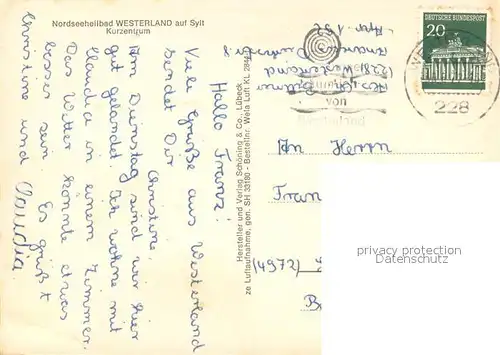 Nordseeheilbad WESTERLAND auf Sylt
Kurzentrum
Hallo Franz!
Viele Grüße aus Westerland
sendet Dir
Christine.
Am Dienstag sind wir hier
gut gelandet. Ich wohne mit
Claudia in einem Zimmer.
Das Wetter könnte etwas
besser sein. Es grüßt
Christine und Claudia.
Hersteller und Verlag Schöning & Co., Lübeck
228 Westerland
von
Westerland
DEUTSCHE BUNDESPOST
20
228
An Herrn
Fran
(4972)
privacy protection
Datenschutz